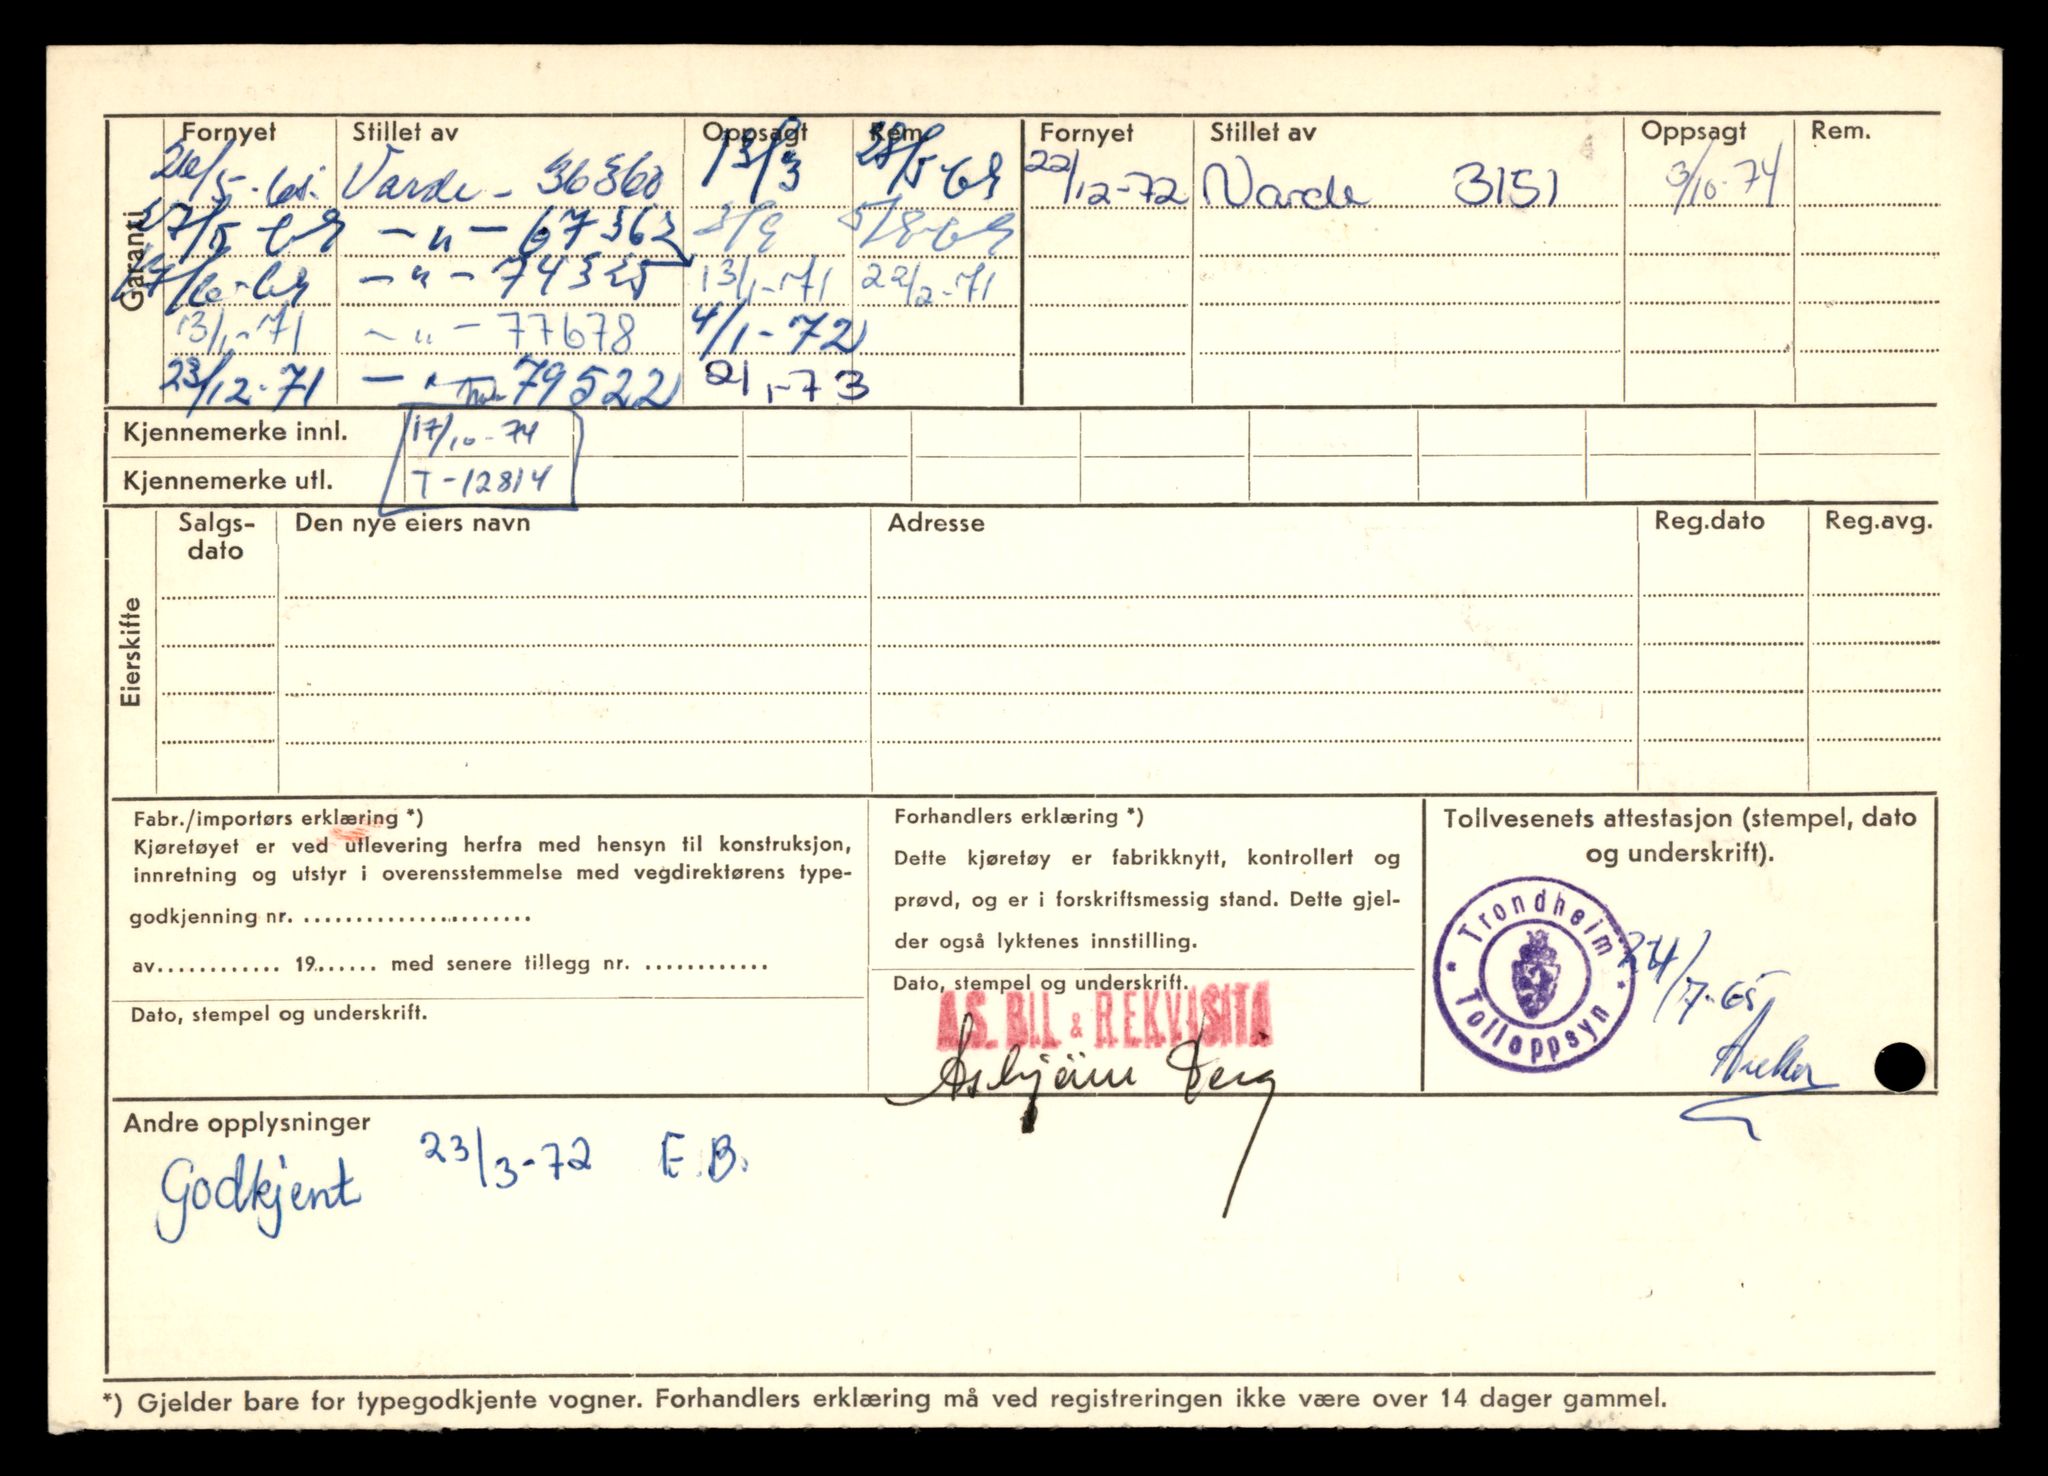 Garanti
Fornyet Stillet av Oppsagt Rem. Fornyet Stillet av Oppsagt Rem.
26/5-65. Varde - 36360 13/3 28/5-69 22/12-72 Varde 3151 3/10-74
27/5-69 - " - 67363 5/8-69
- " - 74325 13/1-71 22/2-71
13/1-71 - " - 77678 4/1-72
23/12-71 - " 79522 2/1-73
Kjennemerke innl. 17/10-74
Kjennemerke utl. T-12814
Eierskifte
Salgs-dato Den nye eiers navn Adresse Reg.dato Reg.avg.
Fabr./importørs erklæring *)
Kjøretøyet er ved utlevering herfra med hensyn til konstruksjon,
innretning og utstyr i overensstemmelse med vegdirektørens type-
godkjenning nr. ......................
av............ 19...... med senere tillegg nr. ............
Dato, stempel og underskrift.
Forhandlers erklæring *)
Dette kjøretøy er fabrikknytt, kontrollert og
prøvd, og er i forskriftsmessig stand. Dette gjel-
der også lyktenes innstilling.
Dato, stempel og underskrift.
A.S. BIL & REKVISITA
Asbjörn Berg
Tollvesenets attestasjon (stempel, dato
og underskrift).
Trondheim * Tolloppsyn *
24/7-65
Andre opplysninger
Godkjent 23/3-72 E.B.
*) Gjelder bare for typegodkjente vogner. Forhandlers erklæring må ved registreringen ikke være over 14 dager gammel.